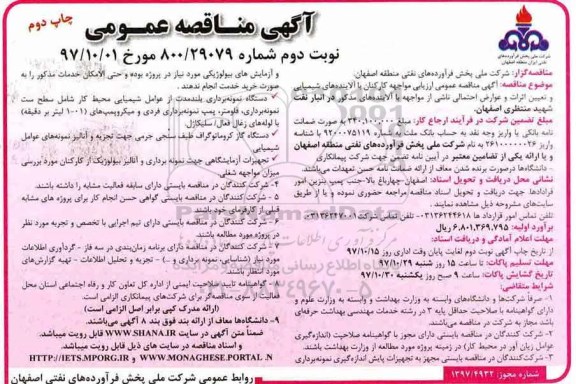 چاپ دوم
آگهی مناقصه عمومی
نوبت دوم شماره ۸۰۰/۲۹۰۷۹ مورخ ۹۷/۱۰/۰۱
شرکت ملی پخش فرآورده‌های نفتی ایران منطقه اصفهان
مناقصه‌گزار: شرکت ملی پخش فرآورده‌های نفتی منطقه اصفهان
موضوع مناقصه: آگهی مناقصه عمومی ارزیابی مواجهه کارکنان با آلاینده‌های شیمیایی
و تعیین اثرات و عوارض احتمالی ناشی از مواجهه با آلاینده‌های مذکور در انبار نفت
شهید منتظری اصفهان
نامه بانکی یا واریز وجه نقد به حساب بانک ملت
به نام شرکت ملی پخش فرآورده‌های نفتی منطقه اصفهان
و یا ارائه یکی از تضامین معتبر در آیین نامه تضمین جهت شرکت پیمانکاری
- دانشگاه‌ها در صورت برنده شدن معاف از ارائه ضمانت نامه حسن تعهدات می‌باشند.
نشانی محل دریافت و تحویل اسناد: اصفهان-چهارباغ بالا-جنب پمپ بنزین امور
قرادادها جهت دریافت و تحویل اسناد مناقصه مراجعه حضوری نموده و یا از طریق
سایت‌های مشروحه ذیل مشاهده نمایند.
برآورد اولیه: ۶.۸۰۱.۳۶۹.۷۹۵ ریال
مهلت اعلام آمادگی و دریافت اسناد:
از تاریخ چاپ آگهی نوبت دوم لغایت پایان وقت اداری روز ۹۷/۱۰/۱۵
مهلت تسلیم پاکات: تا ساعت ۱۵ روز شنبه ۹۷/۱۰/۲۹
تاریخ گشایش پاکات: ساعت ۹ صبح روز یکشنبه ۹۷/۱۰/۳۰
شرایط متقاضی:
۱- صرفاً شرکت‌ها و دانشگاه‌های وابسته به وزارت بهداشت و وابسته به وزارت علوم و
دارای گواهینامه با صلاحیت حداقل پایه ۳ در رشته خدمات مهندسی بهداشت حرفه‌ای
مجاز به شرکت در مناقصه می‌باشند.
۲- شرکت کنندگان در مناقصه بایستی دارای مجوز یا گواهینامه صلاحیت (اندازه‌گیری
عوامل زیان آور در محیط کار) در زمینه پروژه مورد مطالعه از وزارت بهداشت باشند.
۳- شرکت‌کنندگان در مناقصه بایستی مجهز به تجهیزات پایش اندازه‌گیری نمونه‌برداری
شماره مجوز: ۱۳۹۷/۴۹۳۲
و آزمایش های بیولوژیکی مورد نیاز در پروژه بوده و حتی الامکان خدمات مذکور را به
صورت خرید خدمت انجام ندهند .
- دستگاه نمونه‌برداری بلندمدت از عوامل شیمیایی محیط کار شامل سطح ست
نمونه‌برداری، فلومتر، پمپ نمونه‌برداری فردی و میکروپمپ‌های (۰/۱ لیتر بر دقیقه)
با لوله‌های زغال فعال/سلیکاژل.
- دستگاه گاز کروماتوگراف طیف سنجی جرمی جهت تجزیه و آنالیز نمونه‌های عوامل
شیمیایی.
- تجهیزات آزمایشگاهی جهت نمونه برداری و آنالیز بیولوژیک از کارکنان مورد بررسی
میزان مواجهه شغلی.
۴- شرکت کنندگان در مناقصه بایستی دارای سابقه فعالیت مشابه را داشته باشند.
۵- شرکت کنندگان در مناقصه بایستی گواهی حسن انجام کار برای پروژه های مشابه
قبلی از کارفرمای خود باشند.
۶- شرکت کنندگان در مناقصه بایستی دارای تیم اجرایی با تخصص و تجربه مورد نظر
در پروژه مورد مطالعه باشند.
۷- شرکت کنندگان در مناقصه بایستی دارای برنامه زمان‌بندی در سه فاز - گردآوری اطلاعات
مورد نیاز (شناسایی، نمونه برداری و ...) - تجزیه و تحلیل اطلاعات - تهیه گزارش‌های
مورد انتظار باشند.
۸- گواهینامه تایید صلاحیت ایمنی از اداره کل تعاون کار و رفاه اجتماعی استان محل
فعالیت از سوی مناقصه‌گر برای کلیه شرکت کنندگان الزامی می‌باشد.
(ارائه مدرک کپی برابر اصل الزامی است)
۹- دانشگاه‌ها معاف از ارائه بند فوق بند ۸ آگهی می‌باشند.
ضمناً متن آگهی در سایت WWW.SHANA.IR قابل رویت میباشد.
و اسناد مناقصه در سایت های ذیل قابل رویت میباشد.
HTTP://IETS.MPORG.IR و WWW.MONAGHESE.PORTAL .N
روابط عمومی شرکت ملی پخش فرآورده‌های نفتی اصفهان